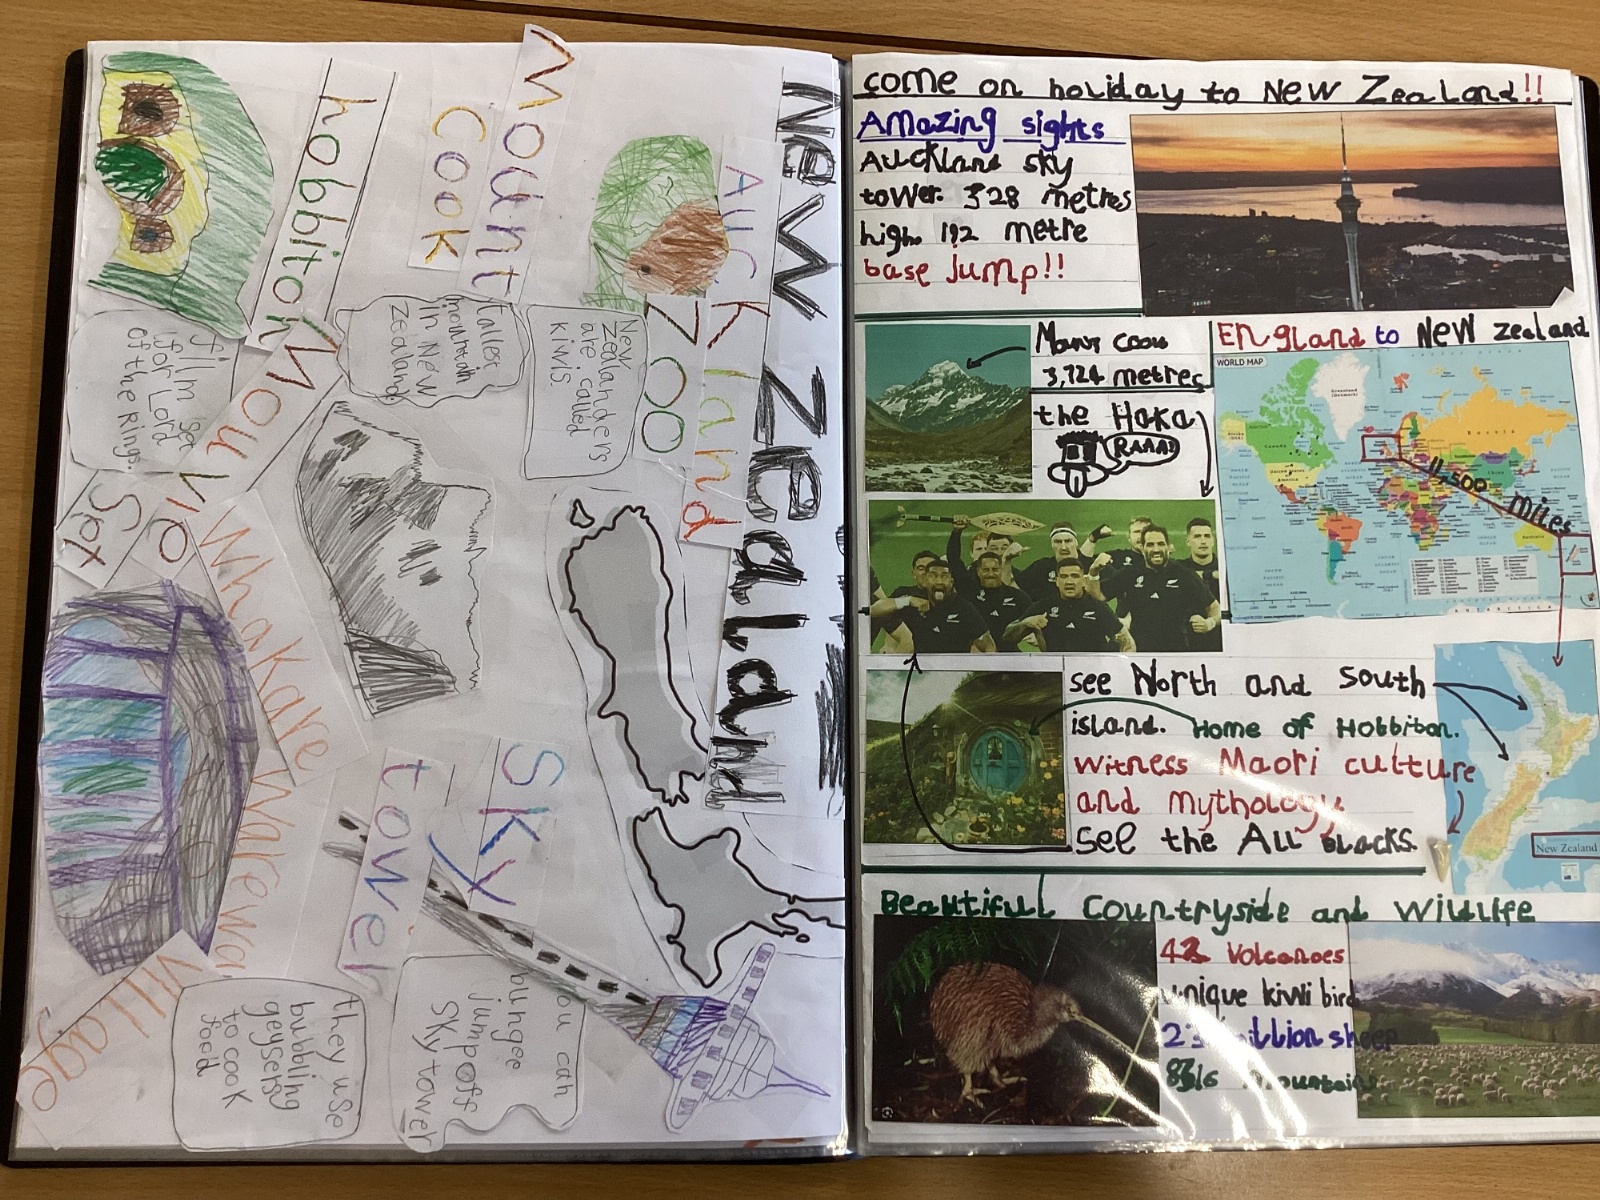 New Zealand
AUCKland
ZOO
New
Zealanders
are called
kiwis
Mount
Cook
tallest
mountain
in New
Zealand
hobbiton
Mouvie
Set
film set
for Lord
of the Rings.
WhaKareWarewa
Village
they use
bubbling
geysers
to cook
food
Sky
tower
you can
bungee
jump off
Sky tower
come on holiday to New Zealand!!
Amazing sights
Auckland sky
tower. 328 metres
high 192 metre
base jump!!
3,724 metres
the Haka
RAAA!
England to New zealand
WORLD MAP
Greenland
(Denmark)
Canada
Russia
11,500 miles
see North and south
island. Home of Hobbiton.
witness Maori culture
and mythology
see the All blacks.
New Zealand
Beautiful Countryside and Wildlife
Volcanoes
unique kiwi bird
million sheep
mountains